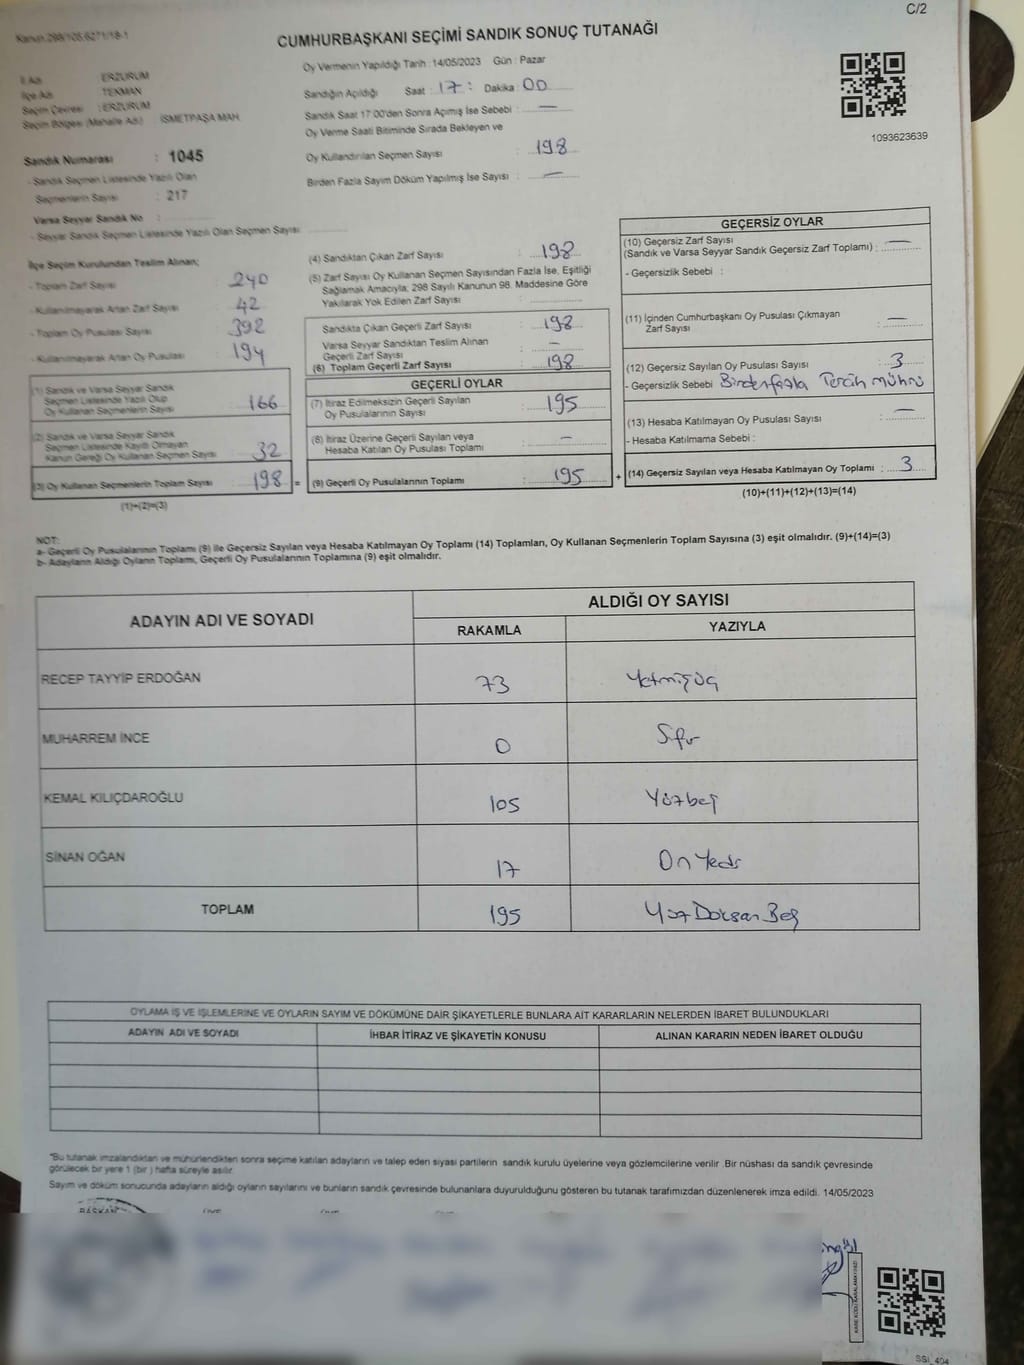 C/2
Kanun.298/105.6271/18-1
CUMHURBAŞKANI SEÇİMİ SANDIK SONUÇ TUTANAĞI
İl Adı : ERZURUM
İlçe Adı : TEKMAN
Seçim Çevresi : ERZURUM
Seçim Bölgesi (Mahalle Adı) : İSMETPAŞA MAH.
Sandık Numarası : 1045
- Sandık Seçmen Listesinde Yazılı Olan
Seçmenlerin Sayısı : 217
Varsa Seyyar Sandık No :
- Seyyar Sandık Seçmen Listesinde Yazılı Olan Seçmen Sayısı:
Oy Vermenin Yapıldığı Tarih : 14/05/2023 Gün : Pazar
Sandığın Açıldığı Saat : 17 : Dakika : 00
Sandık Saat 17:00'den Sonra Açımış İse Sebebi : —
Oy Verme Saati Bitiminde Sırada Bekleyen ve
Oy Kullandırılan Seçmen Sayısı : 198
Birden Fazla Sayım Döküm Yapılmış İse Sayısı : —
1093623639
İlçe Seçim Kurulundan Teslim Alınan;
- Toplam Zarf Sayısı : 240
- Kullanılmayarak Artan Zarf Sayısı : 42
- Toplam Oy Pusulası Sayısı : 392
- Kullanılmayarak Artan Oy Pusulası : 194
(1) Sandık ve Varsa Seyyar Sandık
Seçmen Listesinde Yazılı Olup
Oy Kullanan Seçmenlerin Sayısı : 166
(2) Sandık ve Varsa Seyyar Sandık
Seçmen Listesinde Kayıtlı Olmayan
Kanun Gereği Oy Kullanan Seçmen Sayısı : 32
(3) Oy Kullanan Seçmenlerin Toplam Sayısı : 198 =
(1)+(2)=(3)
(4) Sandıktan Çıkan Zarf Sayısı : 198
(5) Zarf Sayısı Oy Kullanan Seçmen Sayısından Fazla İse, Eşitliği
Sağlamak Amacıyla; 298 Sayılı Kanunun 98. Maddesine Göre
Yakılarak Yok Edilen Zarf Sayısı :
Sandıkta Çıkan Geçerli Zarf Sayısı : 198
Varsa Seyyar Sandıktan Teslim Alınan
Geçerli Zarf Sayısı : —
(6) Toplam Geçerli Zarf Sayısı : 198
GEÇERLİ OYLAR
(7) İtiraz Edilmeksizin Geçerli Sayılan
Oy Pusulalarının Sayısı : 195
(8) İtiraz Üzerine Geçerli Sayılan veya
Hesaba Katılan Oy Pusulası Toplamı : —
(9) Geçerli Oy Pusulalarının Toplamı : 195 +
GEÇERSİZ OYLAR
(10) Geçersiz Zarf Sayısı
(Sandık ve Varsa Seyyar Sandık Geçersiz Zarf Toplamı) : —
- Geçersizlik Sebebi :
(11) İçinden Cumhurbaşkanı Oy Pusulası Çıkmayan
Zarf Sayısı : —
(12) Geçersiz Sayılan Oy Pusulası Sayısı : 3
- Geçersizlik Sebebi : Birden fazla Tercih mührü
(13) Hesaba Katılmayan Oy Pusulası Sayısı : —
- Hesaba Katılmama Sebebi :
(14) Geçersiz Sayılan veya Hesaba Katılmayan Oy Toplamı : 3
(10)+(11)+(12)+(13)=(14)
NOT:
a- Geçerli Oy Pusulalarının Toplamı (9) ile Geçersiz Sayılan veya Hesaba Katılmayan Oy Toplamı (14) Toplamları, Oy Kullanan Seçmenlerin Toplam Sayısına (3) eşit olmalıdır. (9)+(14)=(3)
b- Adayların Aldığı Oyların Toplamı, Geçerli Oy Pusulalarının Toplamına (9) eşit olmalıdır.
ADAYIN ADI VE SOYADI ALDIĞI OY SAYISI
RAKAMLA YAZIYLA
RECEP TAYYİP ERDOĞAN 73 Yetmişüç
MUHARREM İNCE 0 Sıfır
KEMAL KILIÇDAROĞLU 105 Yüzbeş
SİNAN OĞAN 17 On Yedi
TOPLAM 195 Yüz Doksan Beş
OYLAMA İŞ VE İŞLEMLERİNE VE OYLARIN SAYIM VE DÖKÜMÜNE DAİR ŞİKAYETLERLE BUNLARA AİT KARARLARIN NELERDEN İBARET BULUNDUKLARI
ADAYIN ADI VE SOYADI İHBAR İTİRAZ VE ŞİKAYETİN KONUSU ALINAN KARARIN NEDEN İBARET OLDUĞU
*Bu tutanak imzalandıktan ve mühürlendikten sonra seçime katılan adayların ve talep eden siyasi partilerin sandık kurulu üyelerine veya gözlemcilerine verilir .Bir nüshası da sandık çevresinde
görülecek bir yere 1 (bir ) hafta süreyle asılır.
Sayım ve döküm sonucunda adayların aldığı oyların sayılarını ve bunların sandık çevresinde bulunanlara duyurulduğunu gösteren bu tutanak tarafımızdan düzenlenerek imza edildi. 14/05/2023
BAŞKAN ÜYE ÜYE
KARE KODU KARALAMAYINIZ!
SSI_404